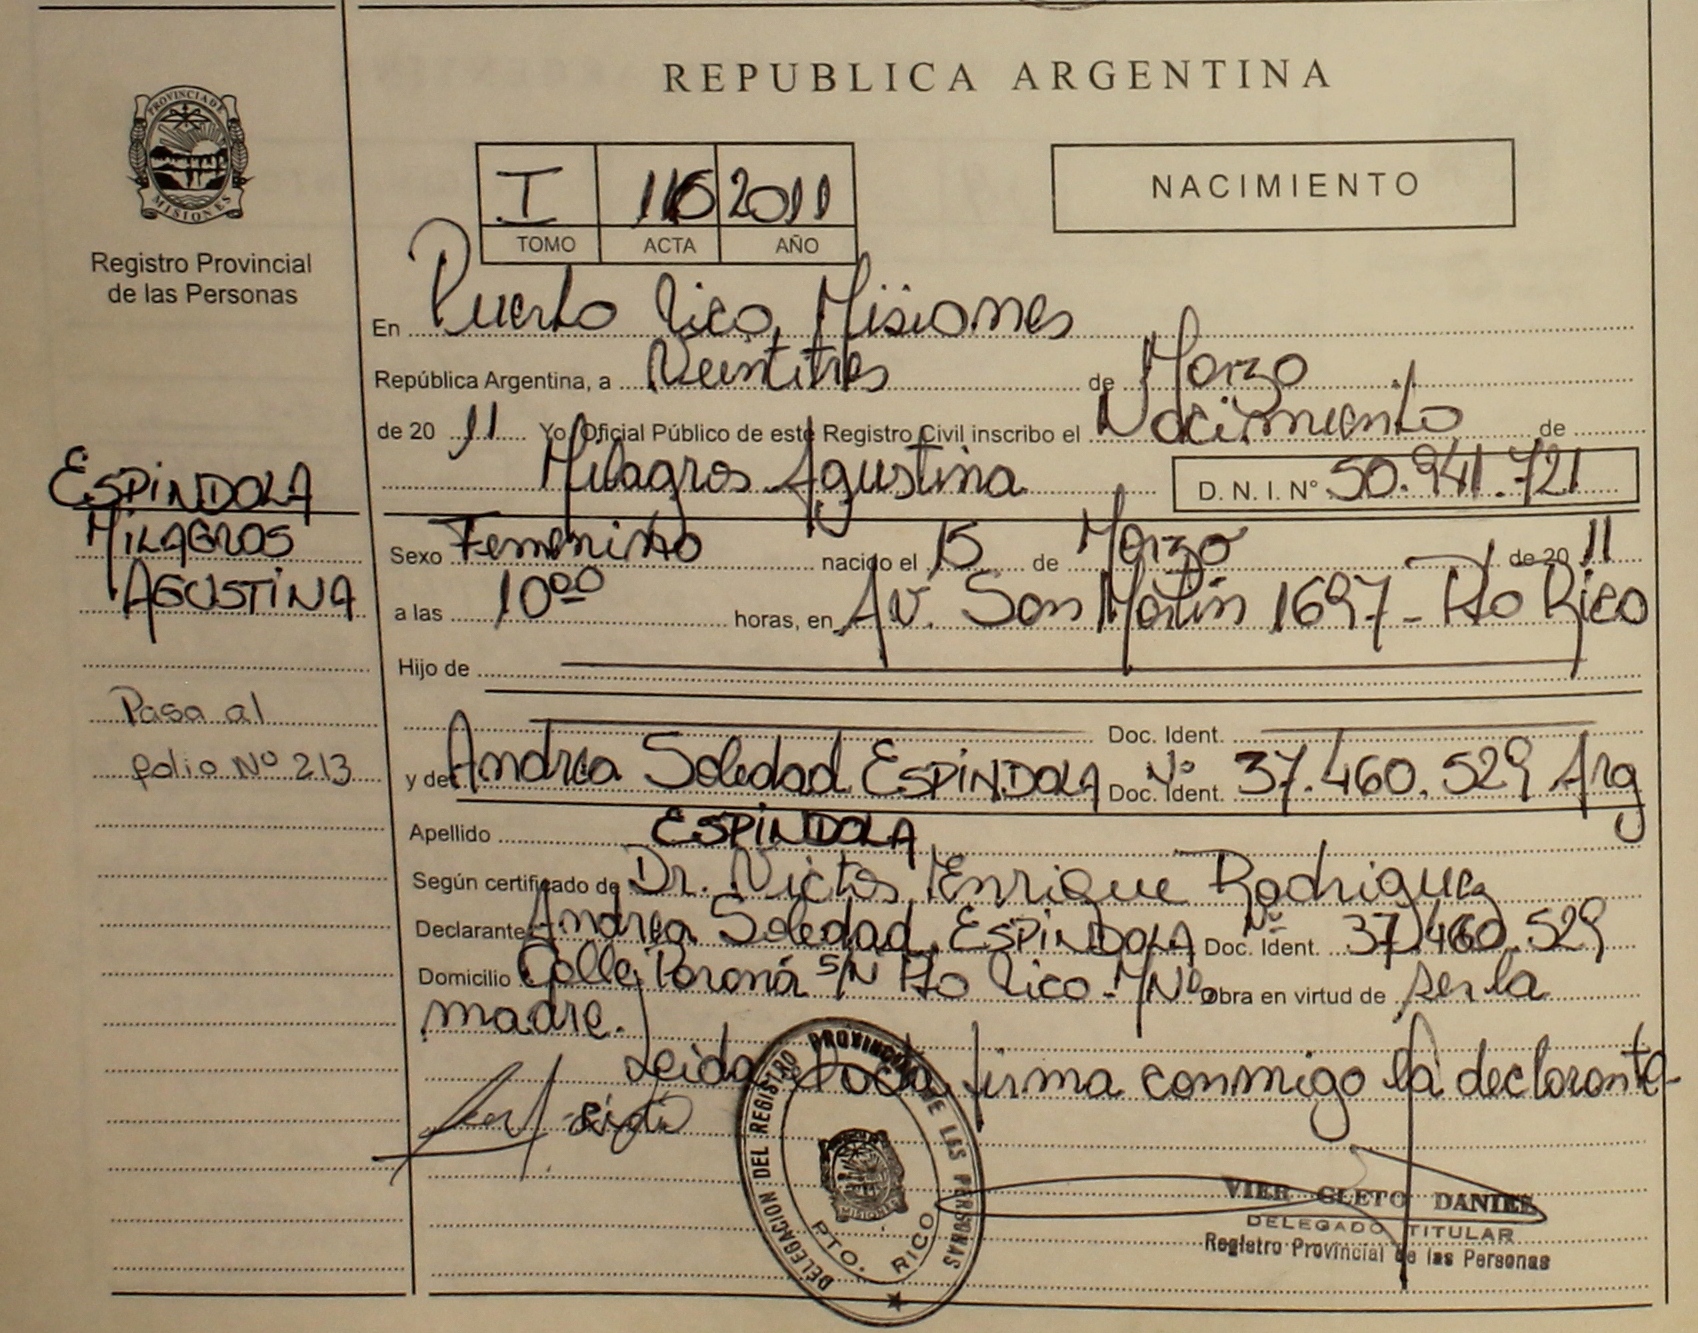 REPUBLICA ARGENTINA
PROVINCIA DE MISIONES
Registro Provincial
de las Personas
I 2011
TOMO ACTA AÑO
NACIMIENTO
En Puerto Rico, Misiones
República Argentina, a Veintitres de Marzo
de 20 11 Yo, Oficial Público de este Registro Civil inscribo el Nacimiento de
Milagros Agustina D. N. I. N° 50.941.721
ESPINDOLA
MILAGROS
AGUSTINA
Pasa al
folio Nº 213
Sexo Femenino nacido el 15 de Marzo de 20 11
a las 10⁰⁰ horas, en Av. San Martin 1697 - Pto Rico
Hijo de
Doc. Ident.
y de Andrea Soledad ESPINDOLA Doc. Ident. Nº 37.460.529 Arg
Apellido ESPINDOLA
Según certificado de Dr. Victor Enrique Rodriguez
Declarante Andrea Soledad ESPINDOLA Doc. Ident. Nº 37.460.529
Domicilio Calle Paraná S/N Pto Rico - Mnes Obra en virtud de ser la
madre.
Leida Acta, firma conmigo la declarante-
DELEGACION DEL REGISTRO PROVINCIAL DE LAS PERSONAS
MISIONES
PTO. RICO
VIER CLETO DANIEL
DELEGADO TITULAR
Registro Provincial de las Personas